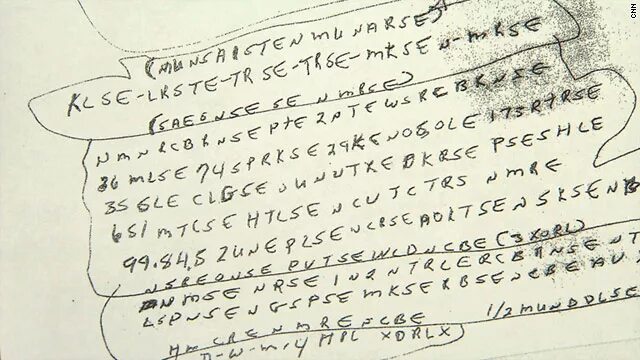 (MUNSAISTENMUNARSE)
KLSE-LRSTE-TRSE-TRSE-MKSEN-MRSE
(SAEGNSESE N MRSE)
NMNRCBRNSEPTE2NTEWSRCBRNSE
36 MLSE 74SPRKSE 29KENOSOLE 173RTRSE
35 GLE CLGSE UUNUTXE DKRSE PSESHLE
651 MTCSE HTLSE NCUTCTRS NMRE
99.84,5 2UNEPLSE NCRSE AOLTSE NSKSENB
NSREONSE PVTSEWLD NCBE (3XORL)
NMSE NRSE IN2NTRLERCBRNSE NT
LSPNSENGSPSE MKSERBSENCBE AU
NMRENCBE 1/2 MUNDDLSE
D-W-M-4 MPL XDRLX
CNN